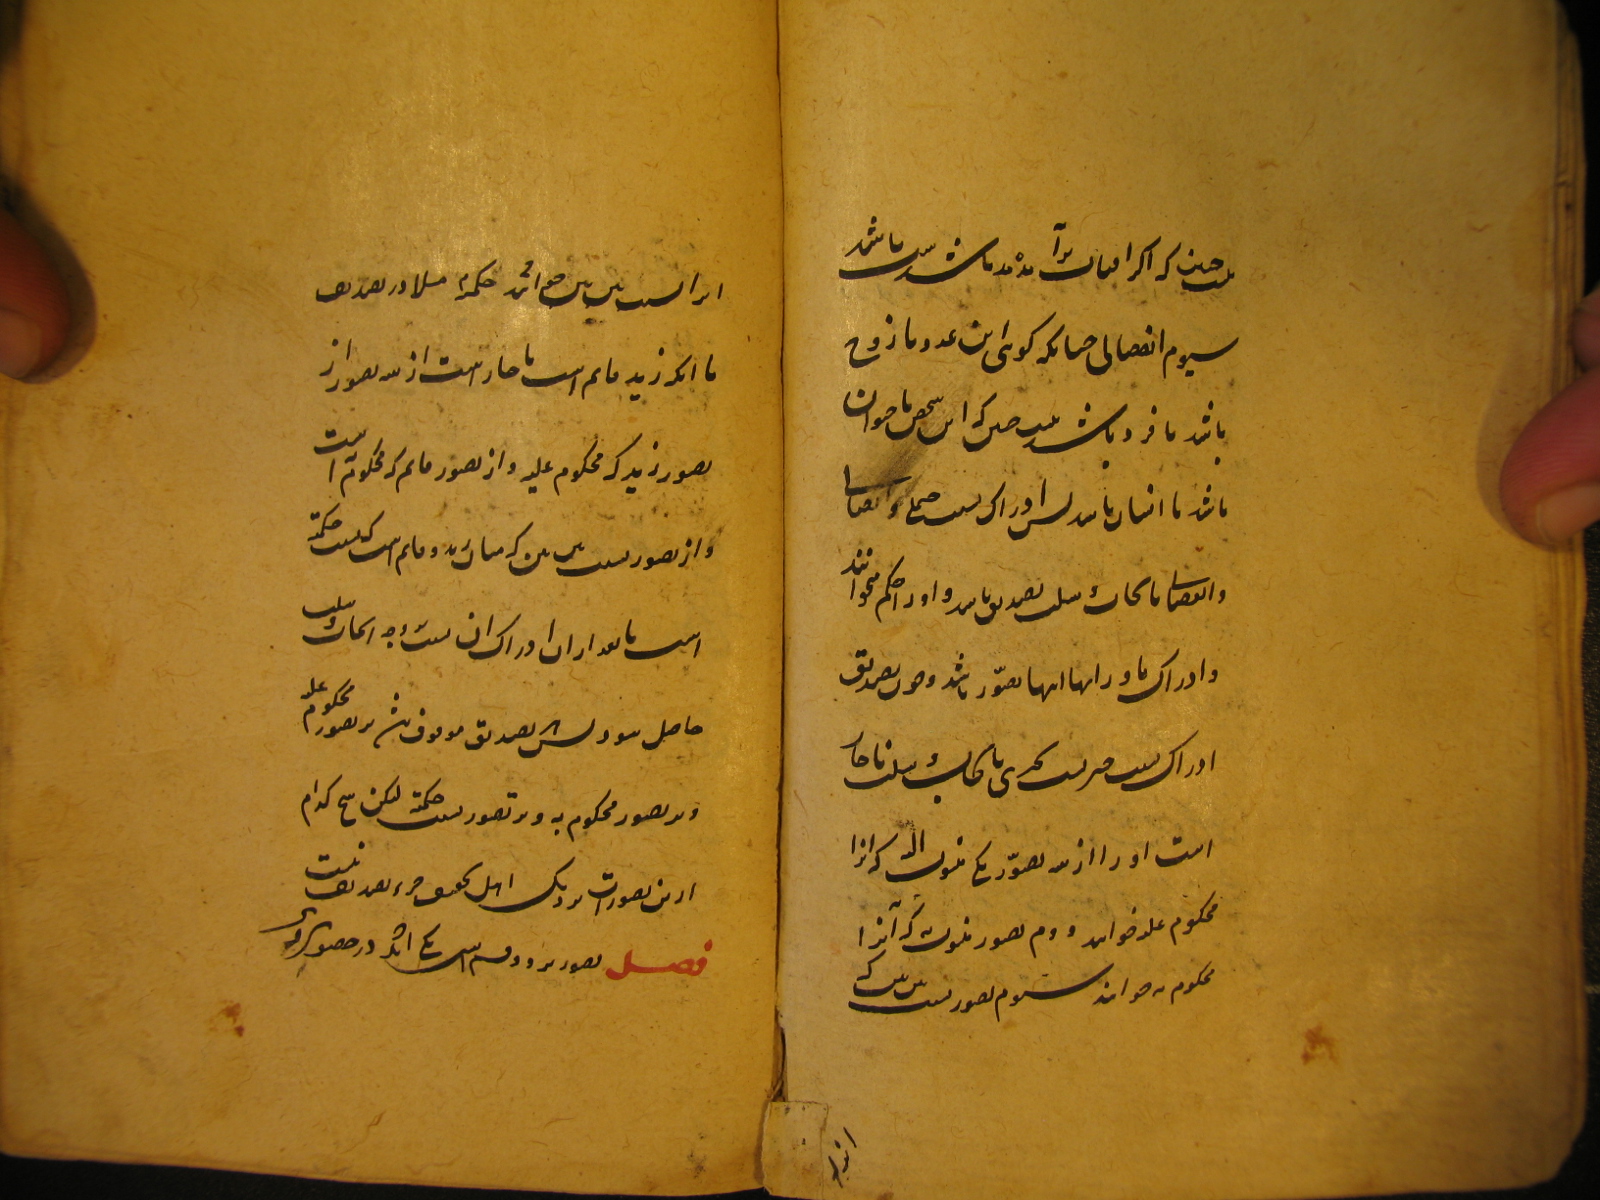 نیست چنین که اگر افتاب برآمده باشد شب باشد
سیوم انفصالی چنانکه کوئی این عدد یا زوج
باشد یا فرد باشد نیست چنین که این شخص یا حیوان
باشد یا انسان باشد پس ادراک نسبت حملی و اتصالی
و انفصالی بایجاب و سلب تصدیق باشد و او را حکم میخوانند
و ادراک ماورای اینها تصوّر باشد و چون تصدیق
ادراک نسبت چیزیست بچیزی بایجاب و سلب ناچار
است او را از سه تصوّر یکی منسوب الیه که انرا
محکوم علیه خوانند دویم تصور منسوب به که آنرا
محکوم به خوانند سیوم تصور نسبت بین بین که
انرا نسبت بین بین خوانند حکمیه مثلا در تصدیق
باانکه زید قایم است ناچار است از سه تصور از
تصور زید که محکوم علیه و از تصور قایم که محکوم به است
و از تصور نسبت بین بین که میان زید و قایم است که نسبت حکمیه
است تا بعد از ان ادراک ان نسبت بر وجه ایجاب و سلب
حاصل شود پس تصدیق موقوف باشد بر تصور محکوم علیه
و بر تصور محکوم به و بر تصور نسبت حکمیه لیکن هیچ کدام
ازین تصورات نزدیک اهل تحقیق جزء تصدیق نیست
فصل تصور بر دو قسم است یکی انکه در حصول وی